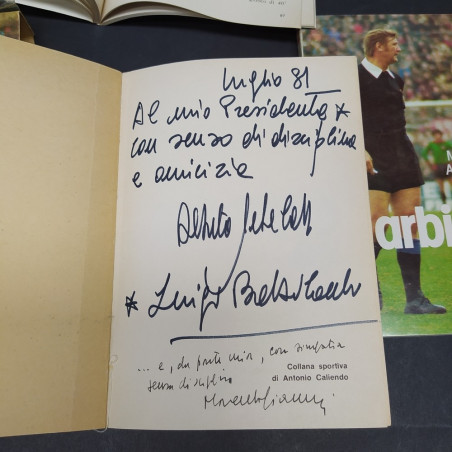 Luglio 81
Al mio Presidente *
con senso di disciplina
e amicizia
Alberto
* Luigi
... e, da parte mia, con simpatia
senza disciplina
Collana sportiva
di Antonio Caliendo
arbi